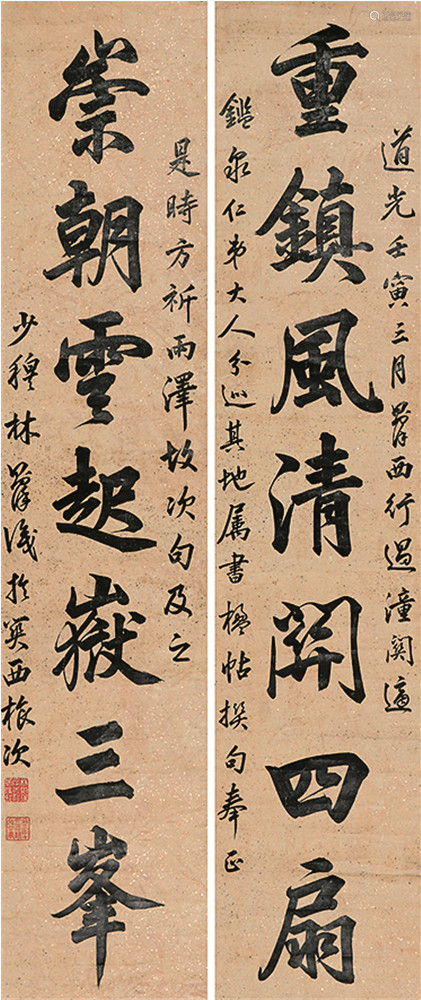 道光壬寅三月則徐西行過潼關適
重鎮風清關四扇
鑑泉仁弟大人分巡其地属書楹帖撰句奉正
是時方祈雨澤故次句及之
崇朝雲起嶽三峯
少穆林則徐識於陝西旅次